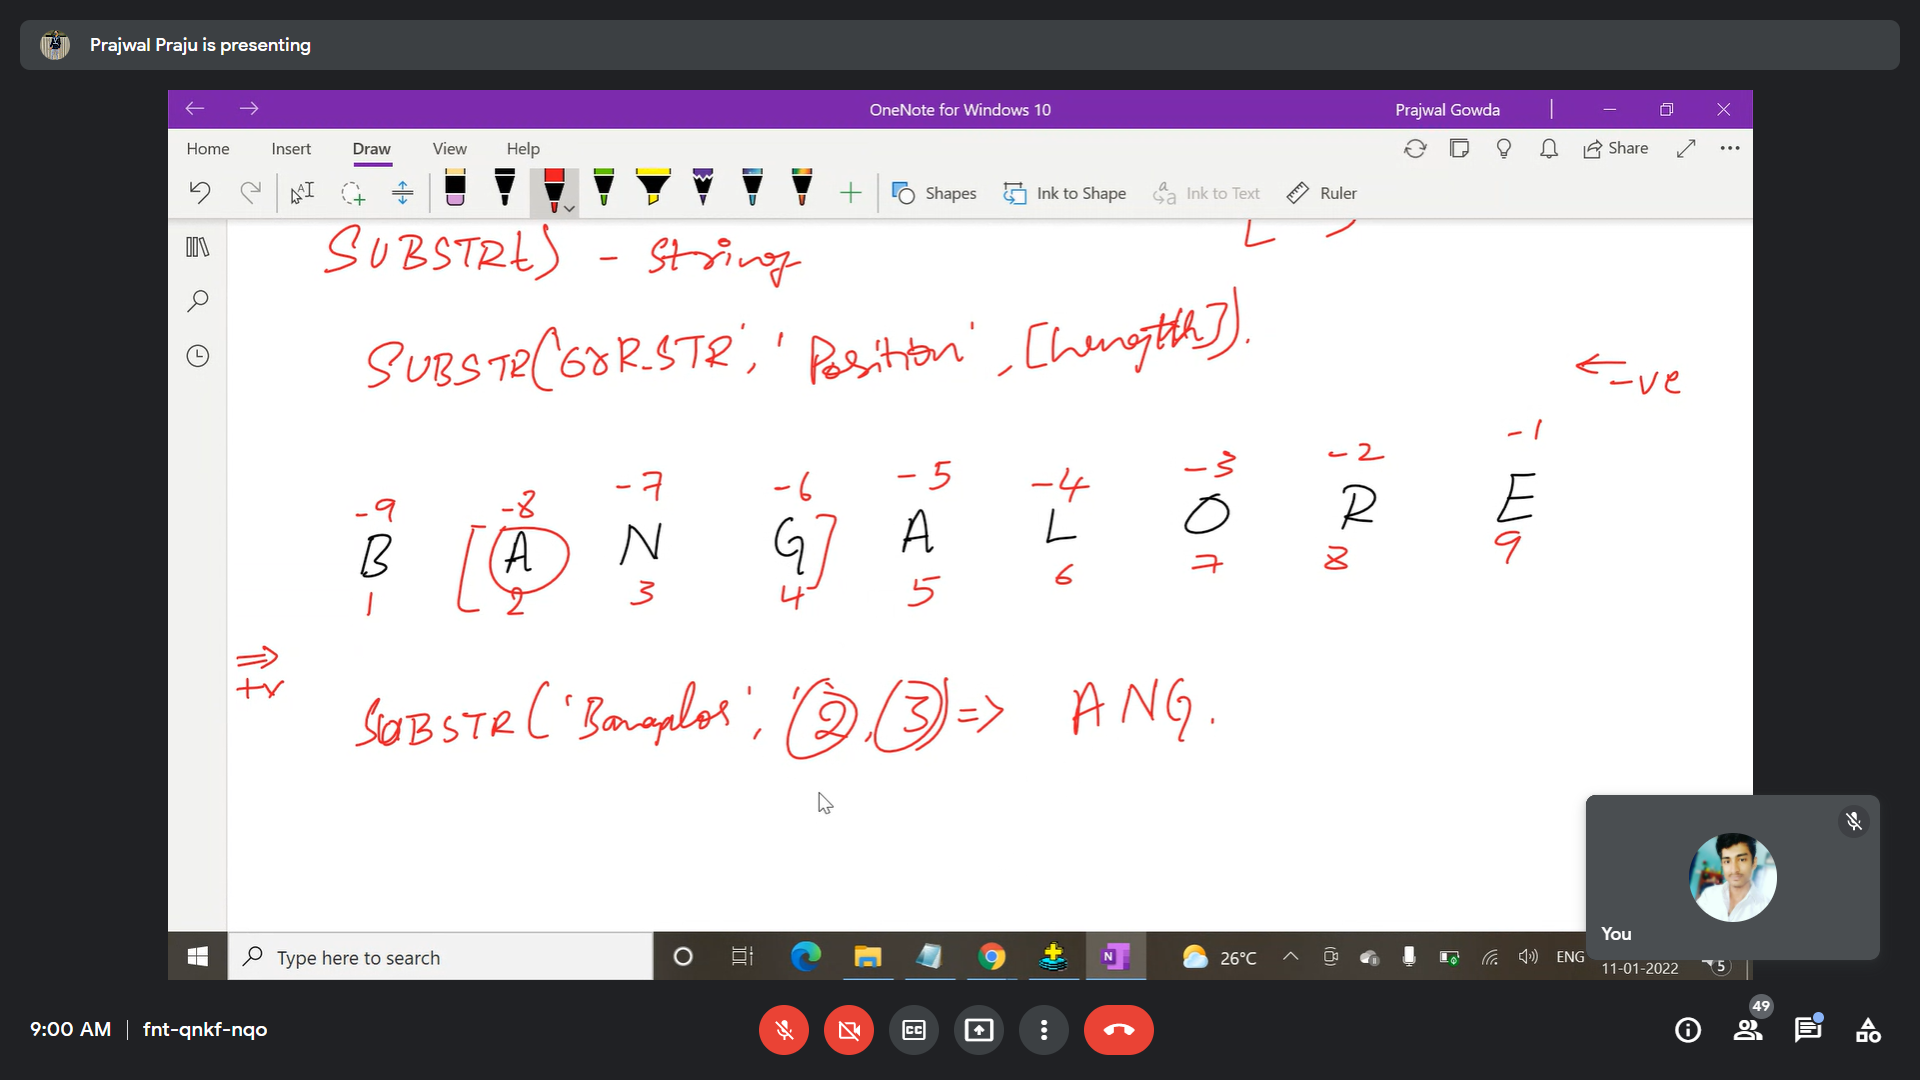 Prajwal Praju is presenting
OneNote for Windows 10
Prajwal Gowda
Home Insert Draw View Help
Share
Shapes Ink to Shape Ink to Text Ruler
SUBSTR() - String
SUBSTR( 'Position', [Length]).
← -ve
-9 -8 -7 -6 -5 -4 -3 -2 -1
B [A N G] A L O R E
1 2 3 4 5 6 7 8 9
⇒
+v
SUBSTR(' ', 2, 3) => ANG.
You
Type here to search
26°C
ENG
11-01-2022
5
9:00 AM | fnt-qnkf-nqo
49